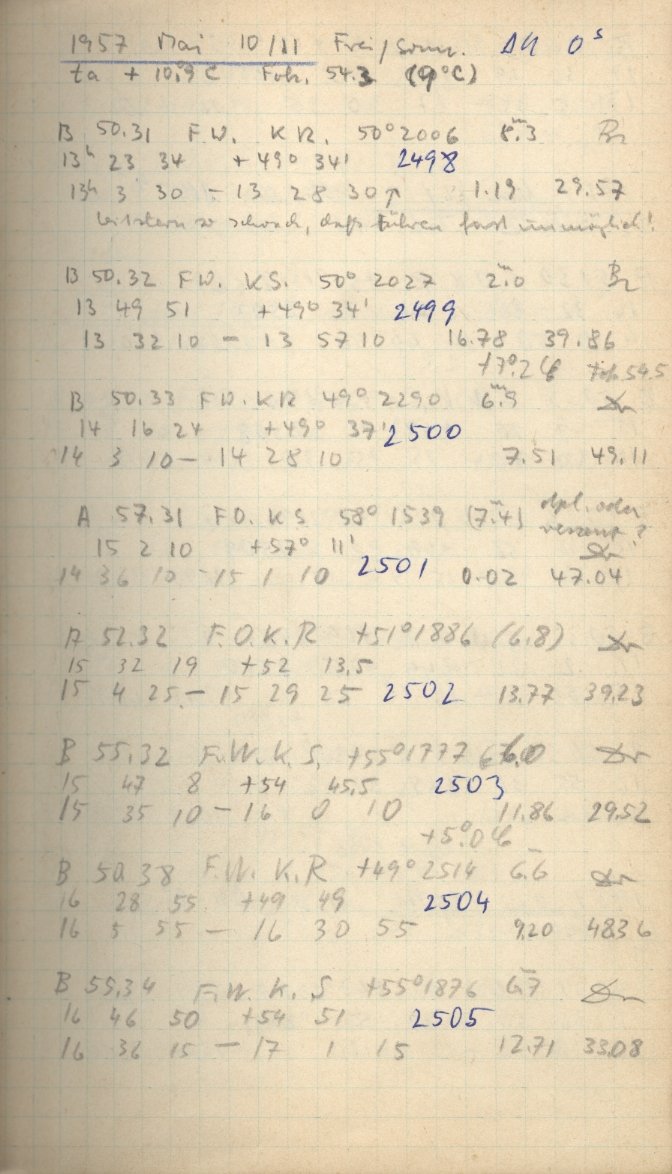 1957 Mai 10/11 Frei/Sonn. ΔU 0ˢ
ta + 10.9 C Fok. 54.3 (9°C)
B 50.31 F.W. K R. 50°2006 8.ᵐ3 Br
13ʰ 23 34 +49° 34' 2498
13ʰ 3 30 - 13 28 30 1.19 29.57
Leitstern so schwach, daß Führen fast unmöglich!
B 50.32 F.W. KS. 50° 2027 2.ᵐ0 Br
13 49 51 +49° 34' 2499
13 32 10 - 13 57 10 16.78 39.86
+7°.2 C Fok. 54.5
B 50.33 F.W. KR 49° 2290 6.ᵐ9
14 16 24 +49° 37' 2500
14 3 10 - 14 28 10 7.51 49.11
A 57.31 F.O. K S 58° 1539 (7.ᵐ4) dpl. oder
verzent?
15 2 10 +57° 11'
14 36 10 - 15 1 10 2501 0.02 47.04
A 52.32 F.O.K.R +51°1886 (6.8)
15 32 19 +52 13,5
15 4 25 - 15 29 25 2502 13.77 39.23
B 55.32 F.W.K.S. +55°1777 6.0
15 47 8 +54 45.5 2503
15 35 10 - 16 0 10 11.86 29.52
+5°.0 C
B 50.38 F.W. K.R +49°2514 6.6
16 28 55 +49 49 2504
16 5 55 - 16 30 55 9.20 48.36
B 55.34 F.W. K. S +55°1876 6.7
16 46 50 +54 51 2505
16 36 15 - 17 1 15 12.71 33.08